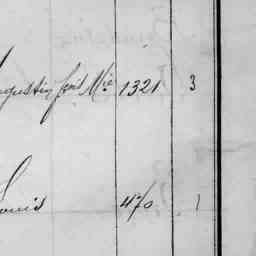 ugustin fois Mie 1321 3
Louis 470 1